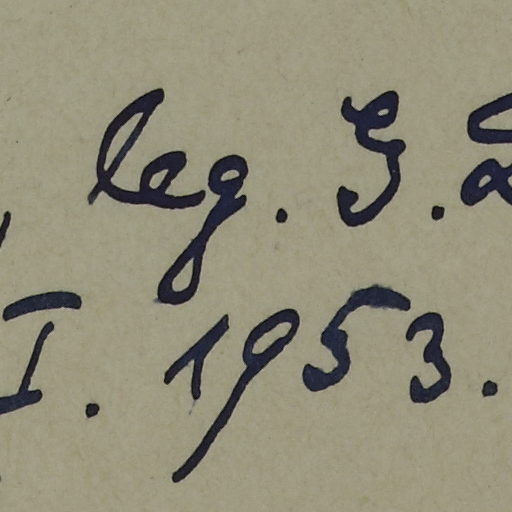 leg. G.
I. 1953.